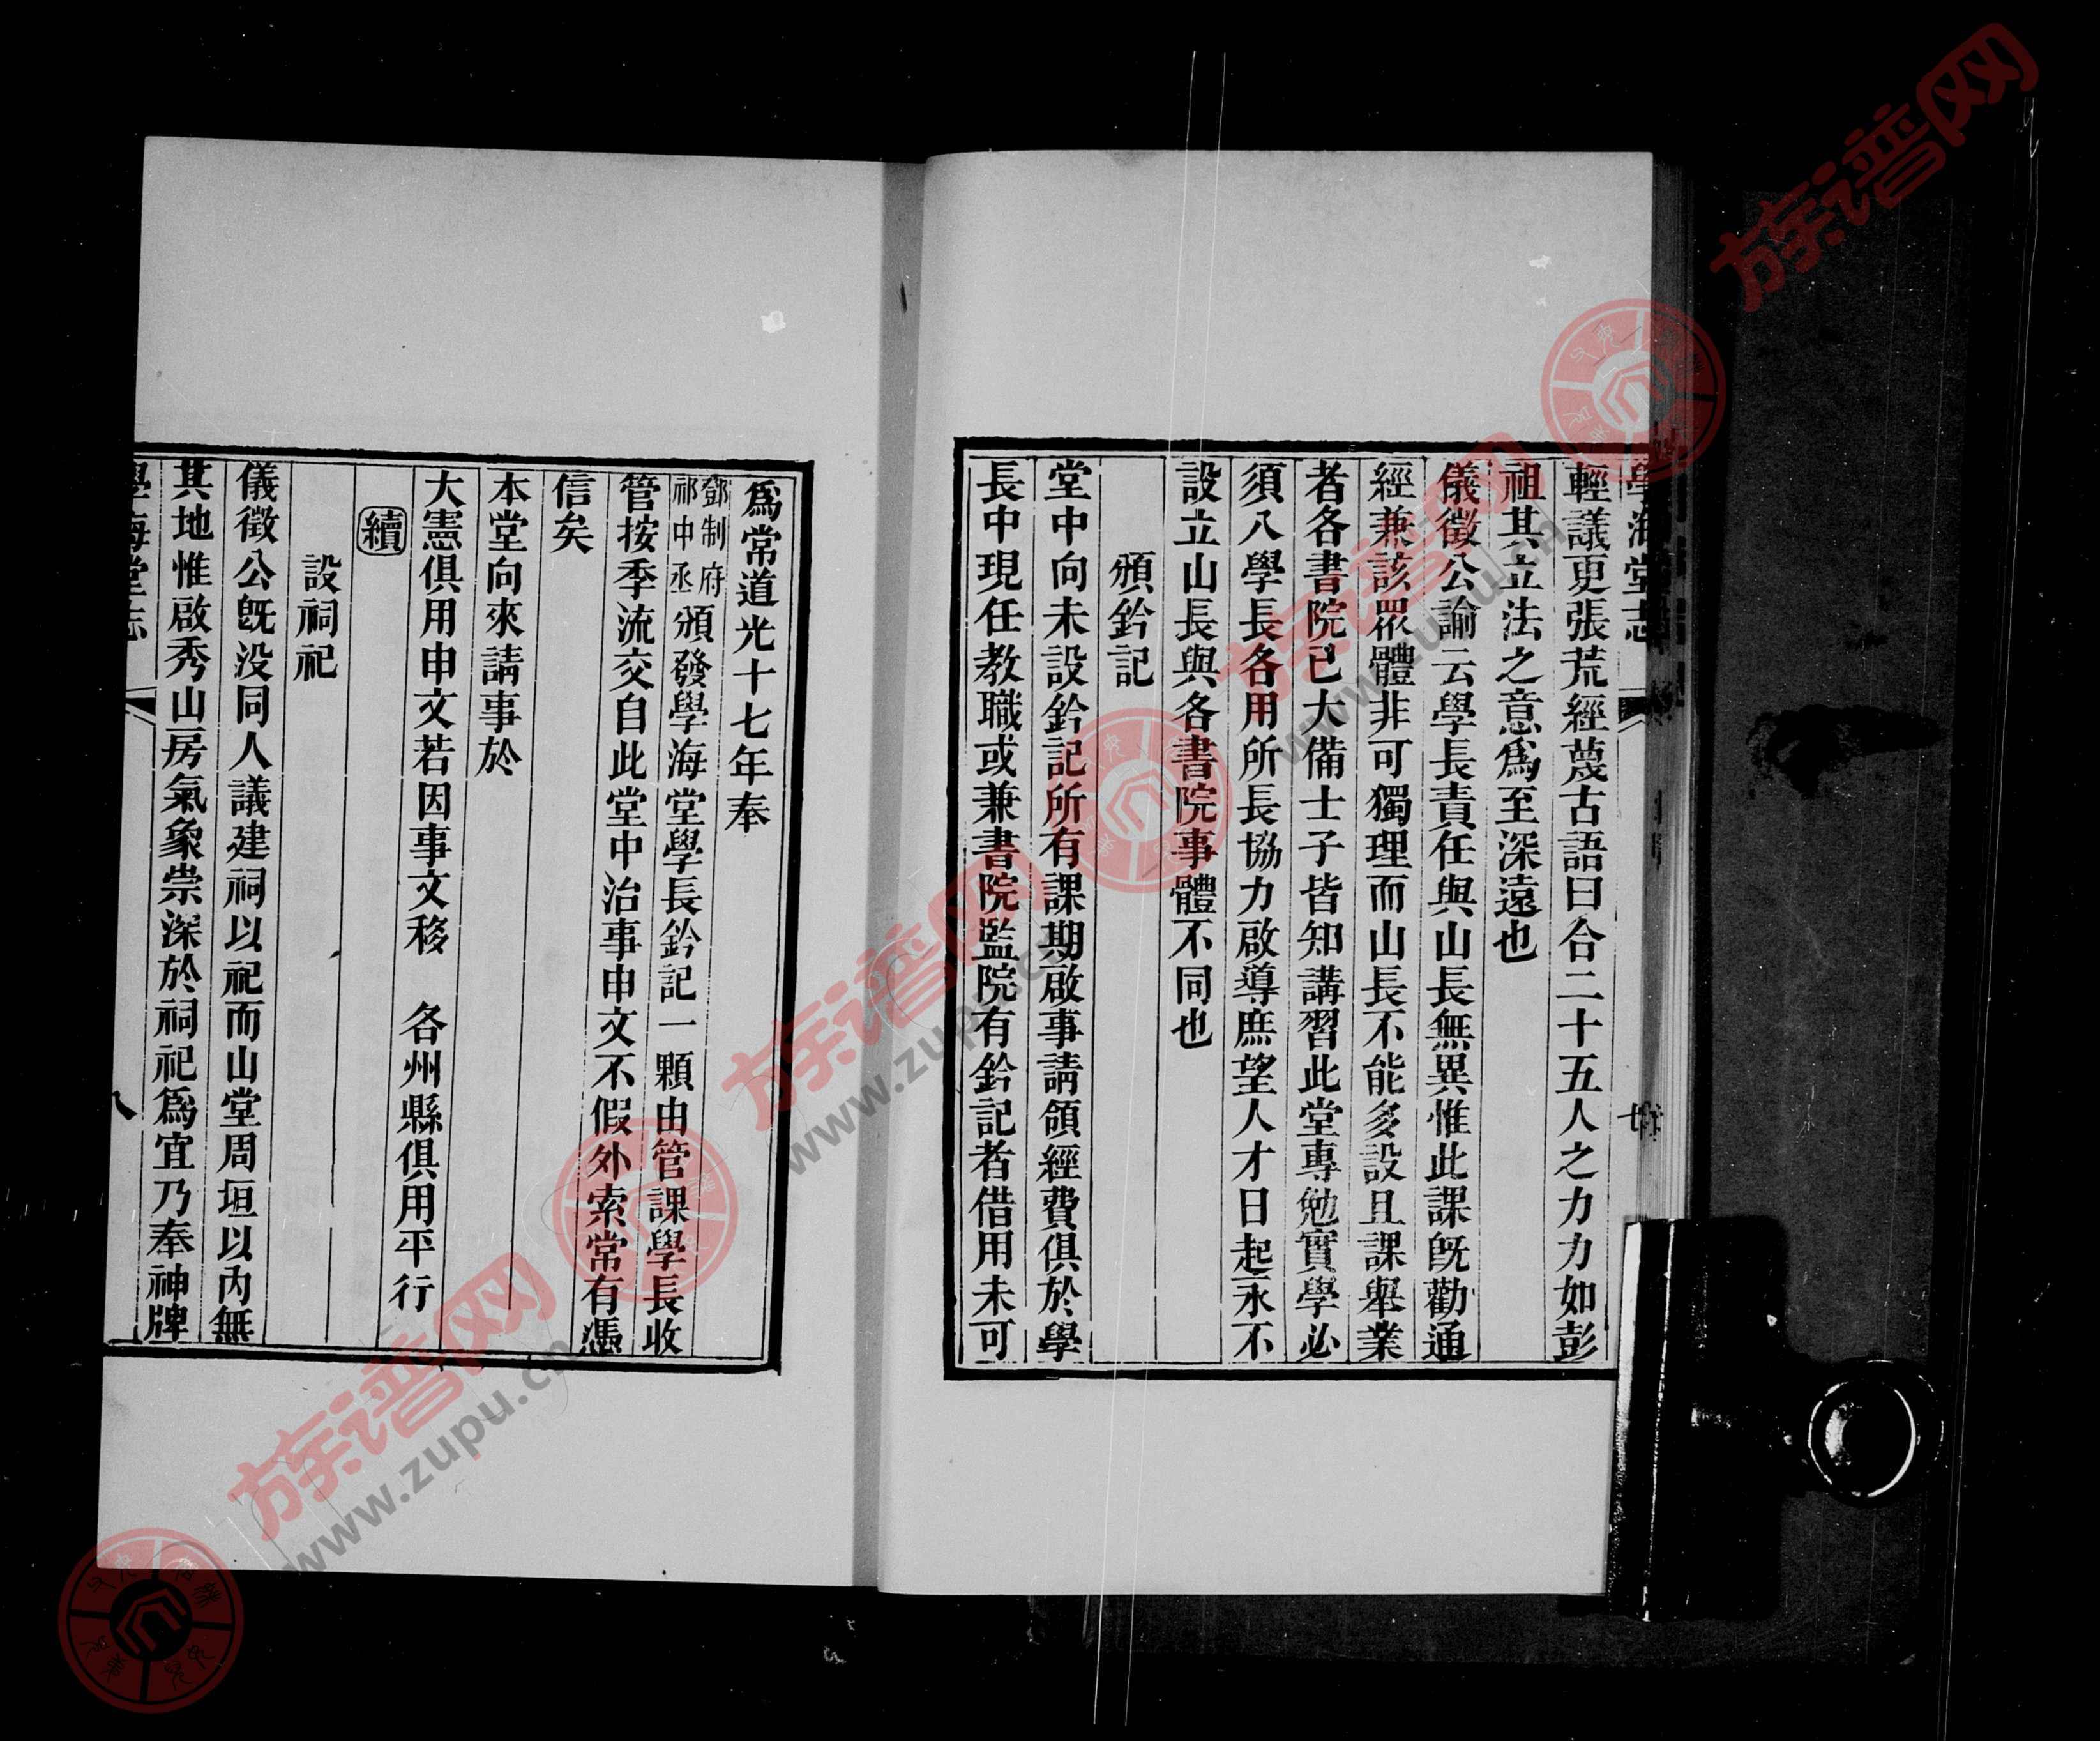 學海堂志
輕議更張荒經蔑古語曰合二十五人之力力如彭
祖其立法之意爲至深遠也
儀徵公諭云學長責任與山長無異惟此課旣勸通
經兼該眾體非可獨理而山長不能多設且課舉業
者各書院已大備士子皆知講習此堂專勉實學必
須八學長各用所長協力啟導庶望人才日起永不
設立山長與各書院事體不同也
頒鈐記
堂中向未設鈐記所有課期啟事請領經費俱於學
長中現任教職或兼書院監院有鈐記者借用未可
爲常道光十七年奉
鄧制府
祁中丞
頒發學海堂學長鈐記一顆由管課學長收
管按季流交自此堂中治事申文不假外索常有憑
信矣
本堂向來請事於
大憲俱用申文若因事文移 各州縣俱用平行
續
設祠祀
儀徵公旣没同人議建祠以祀而山堂周垣以內無
其地惟啟秀山房氣象崇深於祠祀爲宜乃奉神牌
學海堂志
八
族谱网
www.zupu.cn
族谱网
www.zupu.cn
族谱网
www.zupu.cn
族谱网